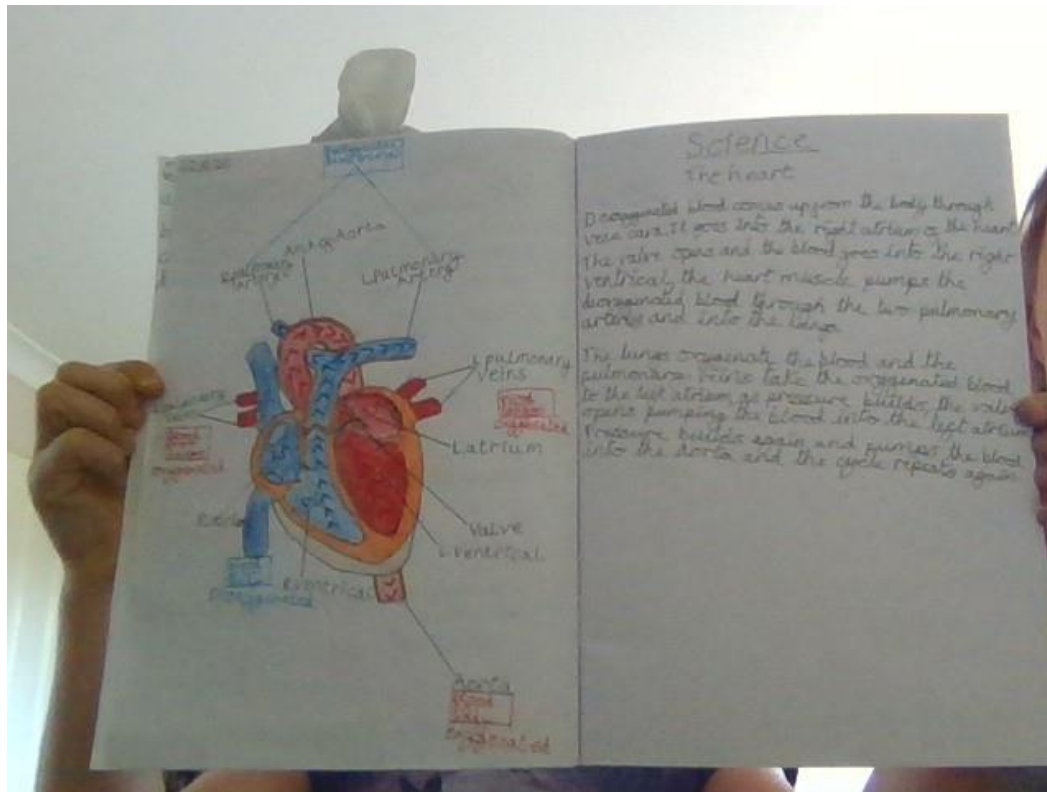 Arch of Aorta
R pulmonary artery
L pulmonary artery
L pulmonary veins
Blood
oxygenated
Latrium
Blood
oxygenated
valve
L ventrical
R ventrical
Deoxygenated
Aorta
Blood
oxygenated
Science
The heart
Deoxygenated blood comes up from the body through
vena cava. It goes into the right atrium of the heart
The valve opens and the blood goes into the right
ventrical, the heart muscle pumps the
deoxygenated blood through the two pulmonary
arterys and into the lungs
The lungs oxygenate the blood and the
pulmonary veins take the oxygenated blood
to the left atrium as pressure builds the valve
opens pumping the blood into the left atrium
Pressure builds again and pumps the blood
into the Aorta and the cycle repeats again